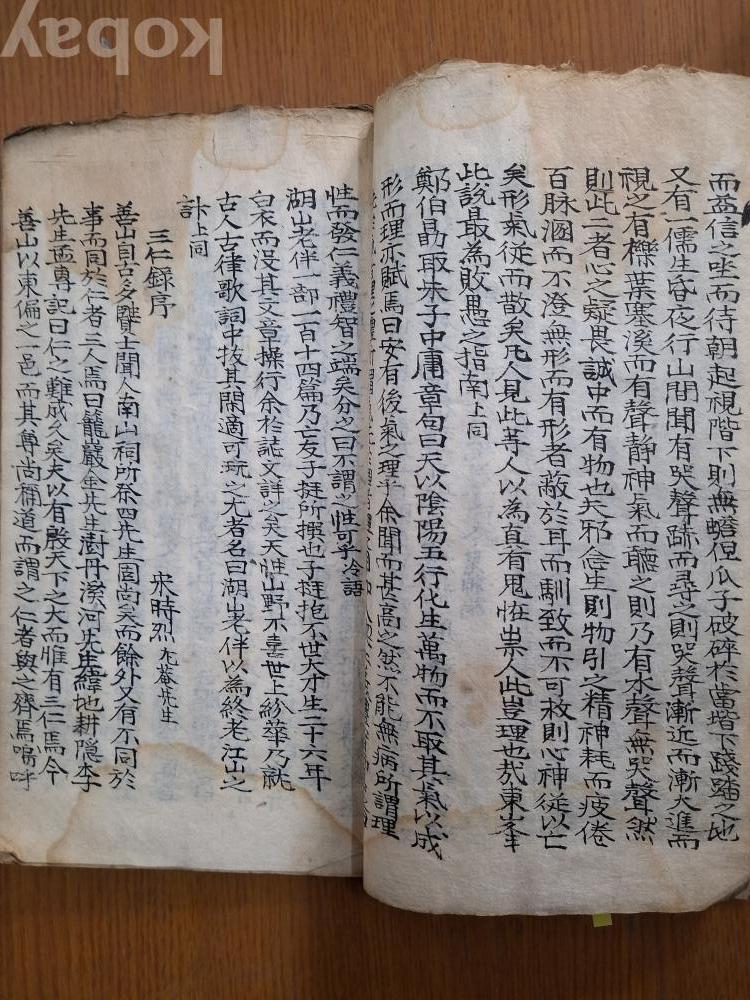 kobay
而益信之坐而待朝起視階下則無蟾但瓜子破碎於當階下踐踏之地
又有一儒生昏夜行山間聞有哭聲跡而尋之則哭聲漸近而漸大進而
視之有櫟葉塞溪而有聲靜神氣而聽之則乃有水聲無哭聲然
則此二者心之疑畏誠中而有物也夫邪念生則物引之精神耗而疲倦
百脉溷而不澄無形而有形者蔽於耳而馴致而不可救則心神從以亡
矣形氣從而散矣凡人見此等人以為真有鬼怪祟人此豈理也哉東峯
此說最為敗愚之指南上同
鄭伯勗取朱子中庸章句曰天以陰陽五行化生萬物而不取其氣以成
形而理亦賦焉曰安有後氣之理乎余聞而甚高之然不能無病所謂理
性而發仁義禮智之端矣分之曰不謂之性可乎冷語
湖山老伴一部一百十四篇乃亡友子挺所撰也子挺抱不世大才生二十六年
白衣而沒其文章操行余於誌文詳之矣天性山野不喜世上紛華乃就
古人古律歌詞中抜其閑適可玩之尤者名曰湖山老伴以為終老江山之
計上同
三仁錄序 宋時烈尤菴先生
善山自古多賢士聞人南山祠所祭四先生固尚矣而餘外又有不同於
事而同於仁者三人焉曰籠巖金先生澍丹溪河先生緯地耕隱李
先生孟專記曰仁之難成久矣夫以有殷天下之大而惟有三仁焉今
善山以東偏之一邑而其尊尚稱道而謂之仁者與之齊焉嗚呼